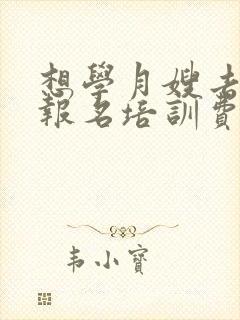 想學月嫂去
報名培訓費
韦小寶